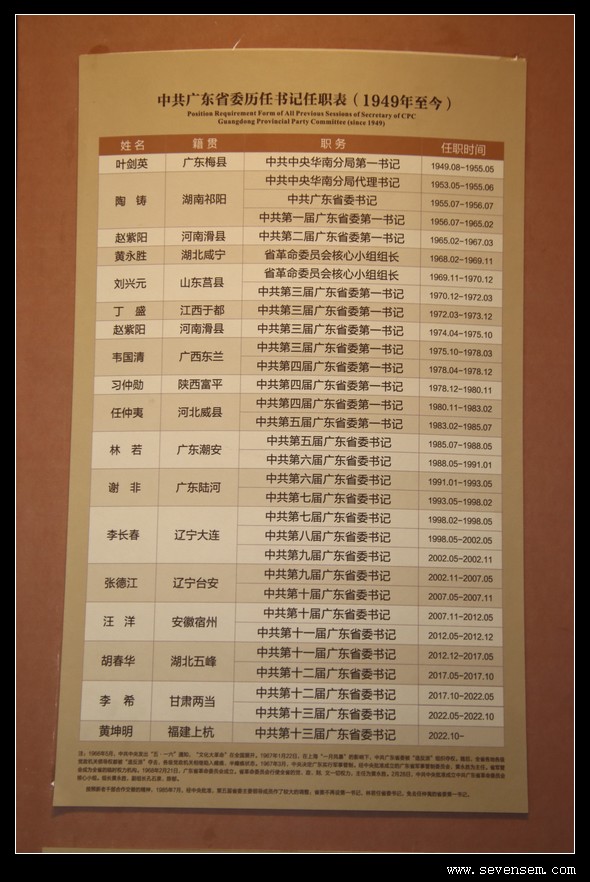 中共广东省委历任书记任职表（1949年至今）
Position Requirement Form of All Previous Sessions of Secretary of CPC
Guangdong Provincial Party Committee (since 1949)
姓名 籍贯 职务 任职时间
叶剑英 广东梅县 中共中央华南分局第一书记 1949.08-1955.05
陶 铸 湖南祁阳 中共中央华南分局代理书记 1953.05-1955.06
中共广东省委书记 1955.07-1956.07
中共第一届广东省委第一书记 1956.07-1965.02
赵紫阳 河南滑县 中共第二届广东省委第一书记 1965.02-1967.03
黄永胜 湖北咸宁 省革命委员会核心小组组长 1968.02-1969.11
刘兴元 山东莒县 省革命委员会核心小组组长 1969.11-1970.12
中共第三届广东省委第一书记 1970.12-1972.03
丁 盛 江西于都 中共第三届广东省委第一书记 1972.03-1973.12
赵紫阳 河南滑县 中共第三届广东省委第一书记 1974.04-1975.10
韦国清 广西东兰 中共第三届广东省委第一书记 1975.10-1978.03
中共第四届广东省委第一书记 1978.04-1978.12
习仲勋 陕西富平 中共第四届广东省委第一书记 1978.12-1980.11
任仲夷 河北威县 中共第四届广东省委第一书记 1980.11-1983.02
中共第五届广东省委第一书记 1983.02-1985.07
林 若 广东潮安 中共第五届广东省委书记 1985.07-1988.05
中共第六届广东省委书记 1988.05-1991.01
谢 非 广东陆河 中共第六届广东省委书记 1991.01-1993.05
中共第七届广东省委书记 1993.05-1998.02
李长春 辽宁大连 中共第七届广东省委书记 1998.02-1998.05
中共第八届广东省委书记 1998.05-2002.05
中共第九届广东省委书记 2002.05-2002.11
张德江 辽宁台安 中共第九届广东省委书记 2002.11-2007.05
中共第十届广东省委书记 2007.05-2007.11
汪 洋 安徽宿州 中共第十届广东省委书记 2007.11-2012.05
中共第十一届广东省委书记 2012.05-2012.12
胡春华 湖北五峰 中共第十一届广东省委书记 2012.12-2017.05
中共第十二届广东省委书记 2017.05-2017.10
李 希 甘肃两当 中共第十二届广东省委书记 2017.10-2022.05
中共第十三届广东省委书记 2022.05-2022.10
黄坤明 福建上杭 中共第十三届广东省委书记 2022.10-
www.sevensem.com